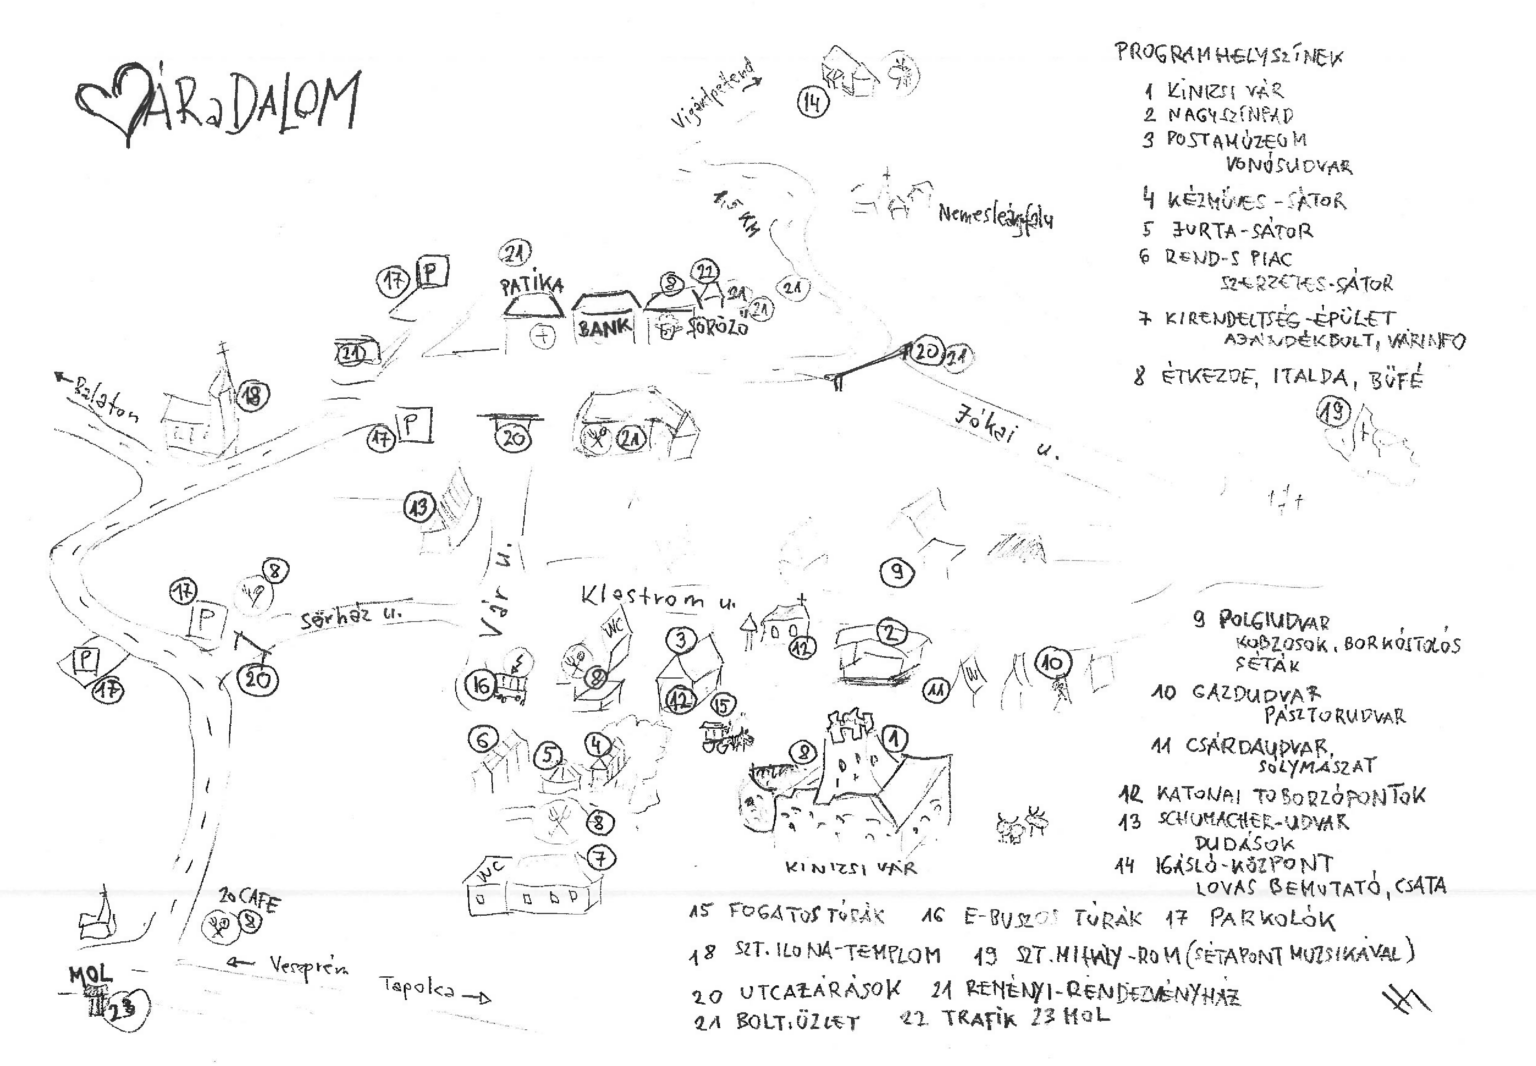 VÁRaDALOM
Vigántpetend
14
1,5 KM
Nemesleányfalu
PROGRAMHELYSZÍNEK
1 KINIZSI VÁR
2 NAGYSZÍNPAD
3 POSTAMÚZEUM
VONÓSUDVAR
4 KÉZMŰVES-SÁTOR
5 JURTA-SÁTOR
6 REND-S PIAC
SZERZETES-SÁTOR
7 KIRENDELTSÉG-ÉPÜLET
AJÁNDÉKBOLT, VÁRINFO
8 ÉTKEZDE, ITALDA, BÜFÉ
19
17 P
21
PATIKA
BANK
8
22
SÖRÖZŐ
21
21
21
21
20 21
Balaton
18
17 P
20
21
Jókai u.
13
Vár u.
Klostrom u.
9
17
P
8
Sörház u.
20
P
17
WC
3
12
12
2
16
8
15
11
10
6
5
4
8
1
8
7
WC
KINIZSI VÁR
9 POLGIUDVAR
KOBZOSOK, BORKÓSTOLÓS
SÉTÁK
10 GAZDUDVAR
PÁSZTORUDVAR
11 CSÁRDAUDVAR,
SOLYMÁSZAT
12 KATONAI TOBORZÓPONTOK
13 SCHUMACHER-UDVAR
DUDÁSOK
14 IGÁSLÓ-KÖZPONT
LOVAS BEMUTATÓ, CSATA
15 FOGATOS TÚRÁK 16 E-BUSZOS TÚRÁK 17 PARKOLÓK
18 SZT. ILONA-TEMPLOM 19 SZT. MIHÁLY-ROM (SÉTAPONT MUZSIKÁVAL)
20 UTCAZÁRÁSOK 21 REMÉNYI-RENDEZVÉNYHÁZ
21 BOLT, ÜZLET 22 TRAFIK 23 MOL
20 CAFE
8
MOL
23
Veszprém
Tapolca